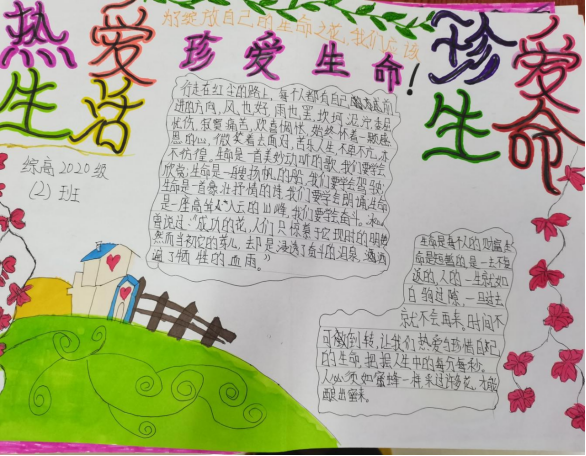 热爱
生活
珍爱
生命
为绽放自己的生命之花,我们应该
珍爱生命!
综高2020级
(2)班
行走在红尘的路上,每个人都有自己
进的方向,风也好,雨也罢,坎坷泥泞
忧伤,寂寞痛苦,欢喜惆怅,始终怀着一颗
恩的心,微笑着去面对,苦乐人生,不卑不亢,亦
不彷徨。生命是一首美妙动听的歌,我们要学会
欣赏;生命是一艘扬帆的船,我们要学会驾驶;
生命是一首豪迈抒情的诗,我们要学会朗诵;生命
是一座高耸入云的山峰,我们要学会奋斗。冰心
曾说过:“成功的花,人们只惊慕于它现时的明艳
然而当初它的芽儿,却是浸透了奋斗的泪泉,洒
遍了牺牲的血雨。”
生命是每个人的财富,生
命是短暂的,是一去不复
返的,人的一生就如
白驹过隙,一旦过去
就不会再来,时间不
可倒转,让我们热爱与珍惜自己
的生命,把握人生中的每分每秒。
人必须如蜜蜂一样,采过许多花,才能
酿出蜜来。